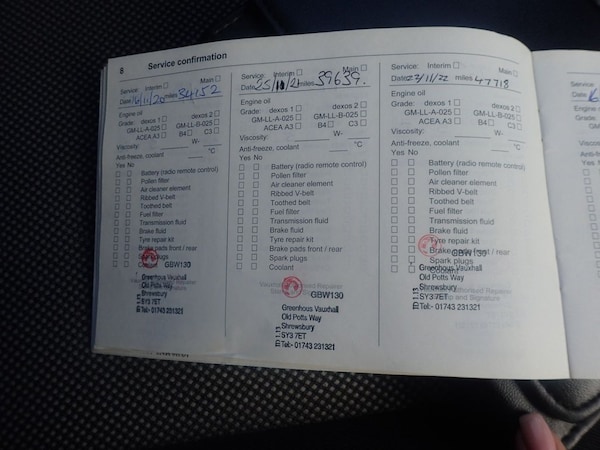 8 Service confirmation
Service: Interim Main
Date 16/11/20 miles 34152
Engine oil
Grade: dexos 1 dexos 2
GM-LL-A-025 GM-LL-B-025
ACEA A3 B4 C3
Viscosity: W-
Anti-freeze, coolant °C
Yes No
Battery (radio remote control)
Pollen filter
Air cleaner element
Ribbed V-belt
Toothed belt
Fuel filter
Transmission fluid
Brake fluid
Tyre repair kit
Brake pads front / rear
GBW130
Greenhous Vauxhall
Old Potts Way
Shrewsbury
SY3 7ET
Tel:- 01743 231321
Service: Interim Main
Date 25/10/21 miles 39639.
Engine oil
Grade: dexos 1 dexos 2
GM-LL-A-025 GM-LL-B-025
ACEA A3 B4 C3
Viscosity: W-
Anti-freeze, coolant °C
Yes No
Battery (radio remote control)
Pollen filter
Air cleaner element
Ribbed V-belt
Toothed belt
Fuel filter
Transmission fluid
Brake fluid
Tyre repair kit
Brake pads front / rear
Spark plugs
Coolant
GBW130
Greenhous Vauxhall
Old Potts Way
Shrewsbury
SY3 7ET
Tel:- 01743 231321
Service: Interim Main
Date 23/11/22 miles 47718
Engine oil
Grade: dexos 1 dexos 2
GM-LL-A-025 GM-LL-B-025
ACEA A3 B4 C3
Viscosity: W-
Anti-freeze, coolant °C
Yes No
Battery (radio remote control)
Pollen filter
Air cleaner element
Ribbed V-belt
Toothed belt
Fuel filter
Transmission fluid
Brake fluid
Tyre repair kit
Brake pads front / rear
Spark plugs
GBW130
Coolant
Greenhous Vauxhall
Old Potts Way
Shrewsbury
SY3 7ET
Tel:- 01743 231321